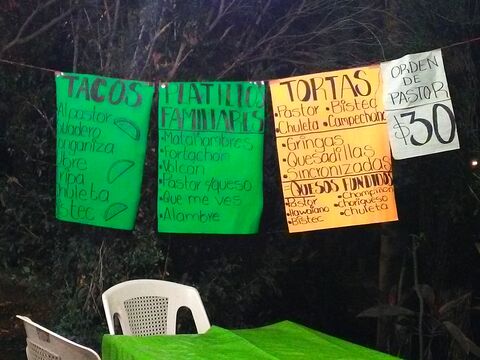 TACOS
Alpastor
Suadero
organiza
Ubre
Tripa
Chuleta
Bistec
PLATILLOS
FAMILIARES
•Matahambres
•Tortacham
•Volcán
•Pastor s/queso
•Que me ves
•Alambre
TORTAS
•Pastor •Bistec
•Chuleta •Campechana
•Gringas
•Quesadillas
•Sincronizadas
QUESOS FUNDIDOS
•Pastor •Champiñon
•Hawaiano •Choriqueso
•Bistec •Chuleta
ORDEN
DE
PASTOR
$30